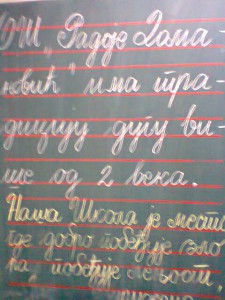 ОШ „Радоје Дома-
новић" има тра-
дицију дугу ви-
ше од 2 века.
Наша школа је место
где добро побеђује зло
побеђује